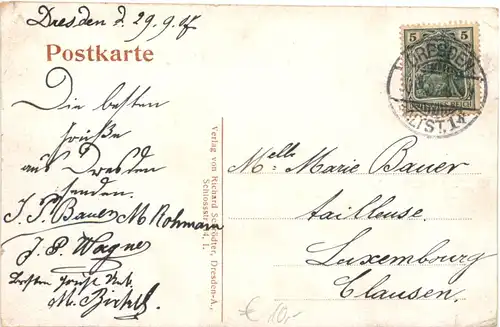 Dresden d. 29.9.
Postkarte
Die besten
Grüße
aus Dresden
senden.
J. P. Bauer M Rohmann
J. P. Wagner
Besten Gruß
M.
Verlag von Richard Schrödter, Dresden-A.,
Schlossstr. 4, I.
5
REICH
DRESDEN
ALTST. 1
Melle Marie Bauer
tailleuse.
Luxembourg
Clausen.
€ 10,-